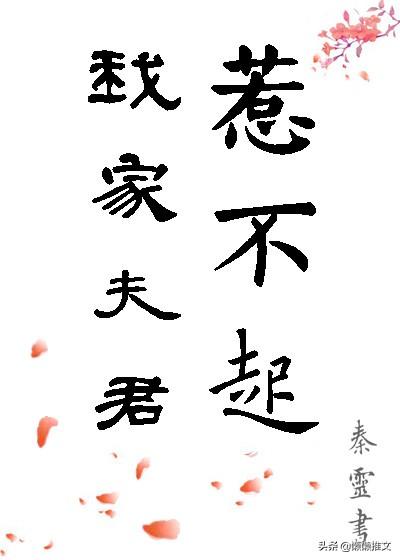 我家夫君
惹不起
秦靈書
头条 @懒懒推文